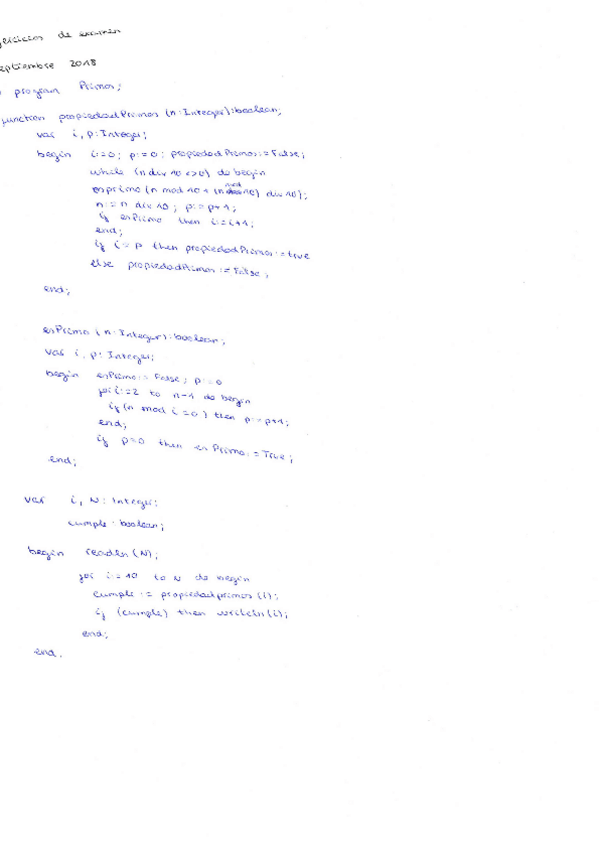 ejercicios de examen
septiembre 2018
program Primos;
function propiedadPrimos (n: Integer): boolean;
var i, p: Integer;
begin i:=0; p:=0; propiedadPrimos:=False;
while (n div 10 <>0) do begin
esprimo (n mod 10 + (n mod 10) div 10);
n:= n div 10; p:=p+1;
if esPrimo then i:=i+1;
end;
if i=p then propiedadPrimos:=true
else propiedadPrimos:=False;
end;
esPrimo (n: Integer): boolean;
var i, p: Integer;
begin esPrimo:= False; p:=0
for i:=2 to n-1 do begin
if (n mod i =0) then p:=p+1;
end;
if p=0 then esPrimo:=True;
end;
var i, N: Integer;
cumple: boolean;
begin readln (N);
for i:=10 to N do begin
cumple := propiedadprimos (i);
if (cumple) then writeln (i);
end;
end.